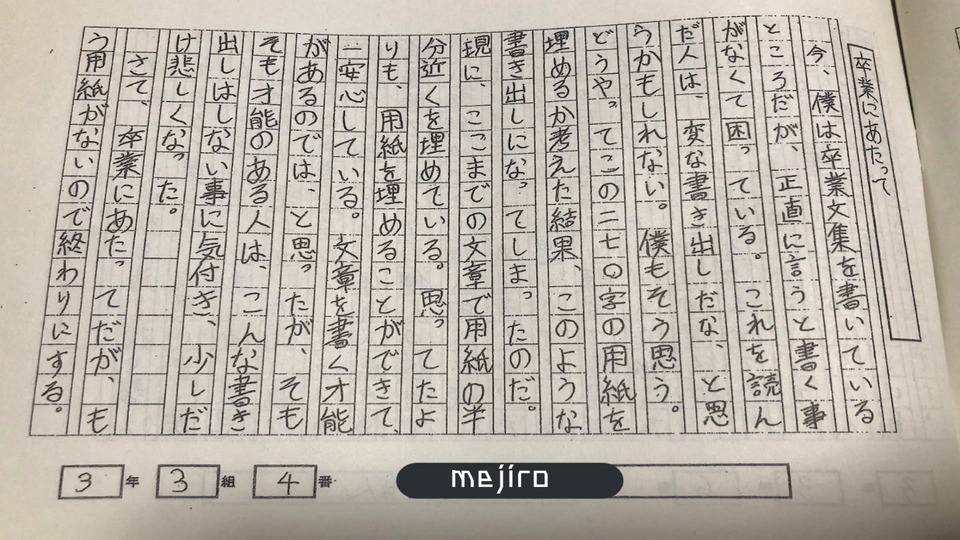 卒業にあたって
今、僕は卒業文集を書いている
ところだが、正直に言うと書く事
がなくて困っている。これを読ん
だ人は、変な書き出しだな、と思
うかもしれない。僕もそう思う。
どうやってこの二七〇字の用紙を
埋めるか考えた結果、このような
書き出しになってしまったのだ。
現に、ここまでの文章で用紙の半
分近くを埋めている。思ってたよ
りも、用紙を埋めることができて、
一安心している。文章を書く才能
があるのでは、と思ったが、そも
そも才能のある人は、こんな書き
出しはしない事に気付き、少しだ
け悲しくなった。
さて、卒業にあたってだが、も
う用紙がないので終わりにする。
3年 3組 4番
mejiro